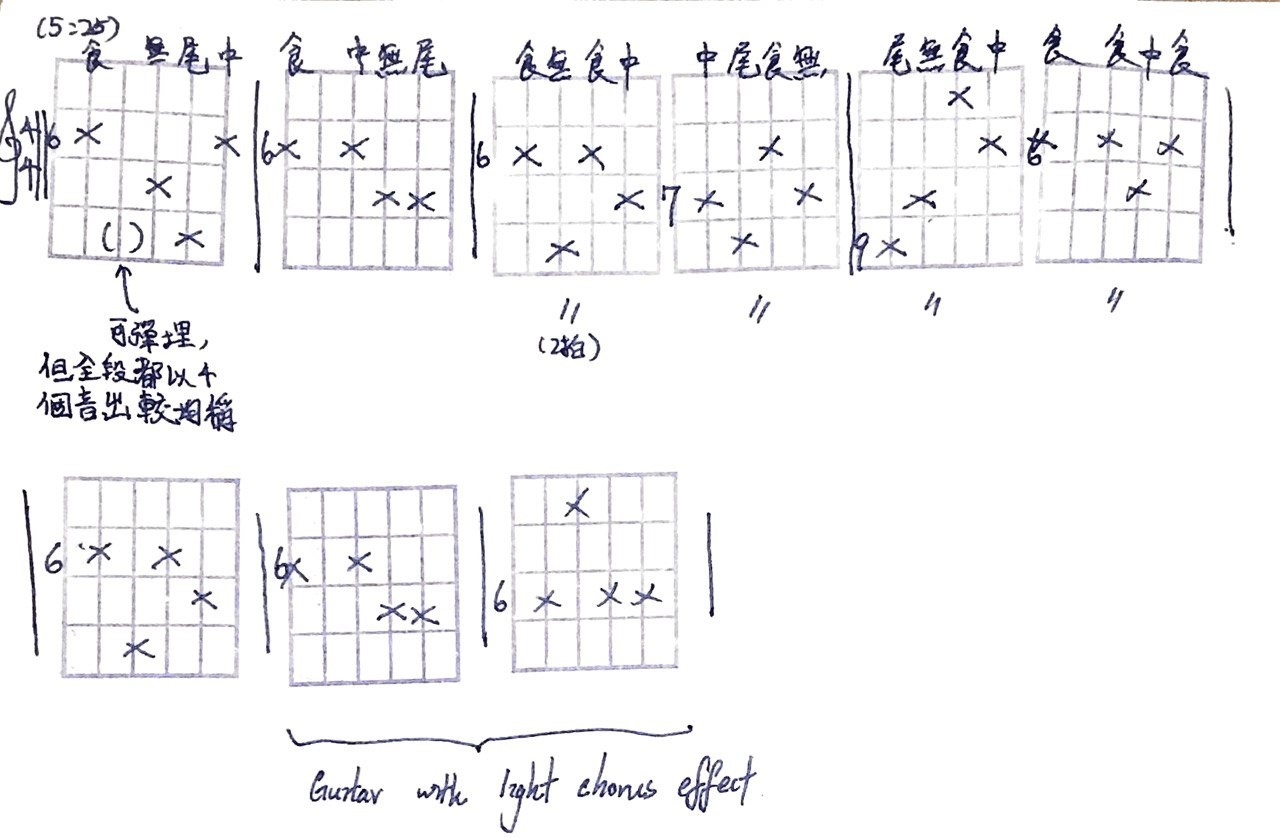 (5:25)
食 無尾中 食 中無尾 食無食中 中尾食無 尾無食中 食 食中食
4
4
6 6 6 7 9 6
( )
〃 〃 〃 〃
(2拍)
可彈埋,
但全段都以4
個音出較均稱
6 6 6
Guitar with light chorus effect